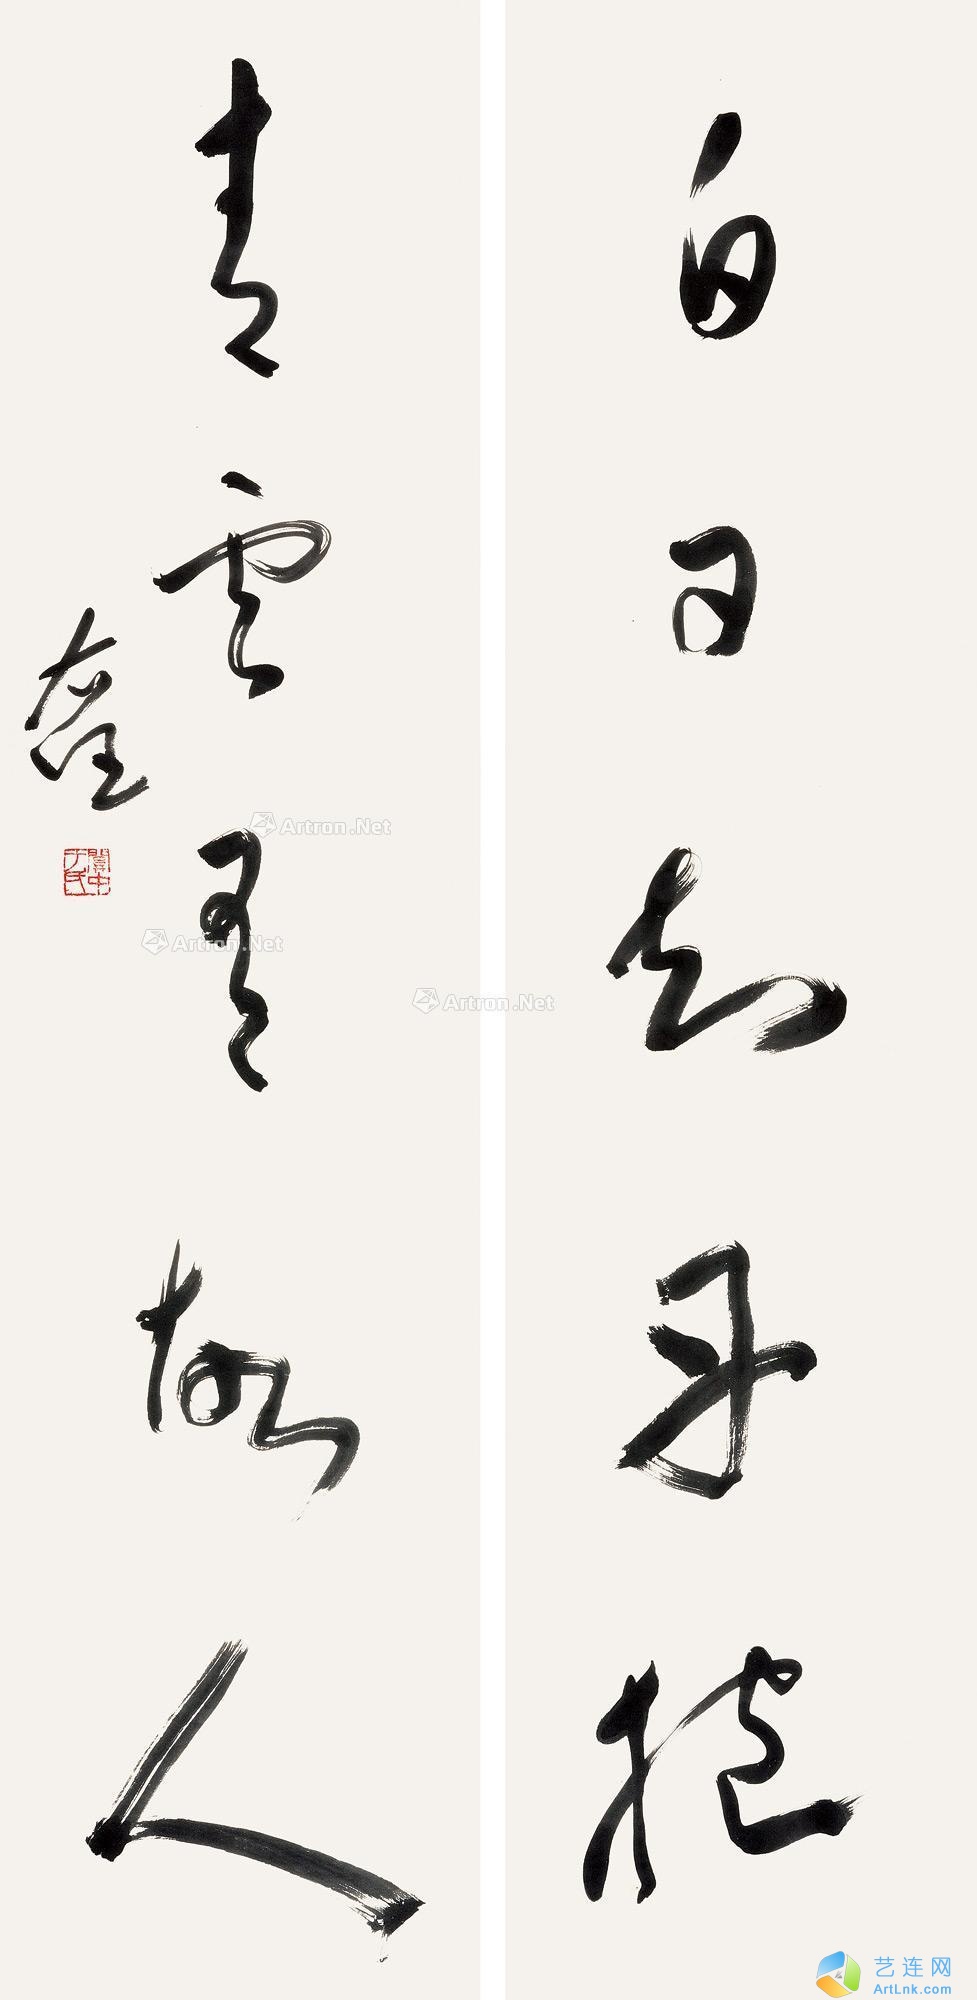 白日知丹抱
青云有故人
右任
關中于氏
Artron.Net
Artron.Net
Artron.Net
艺连网
ArtLnk.com